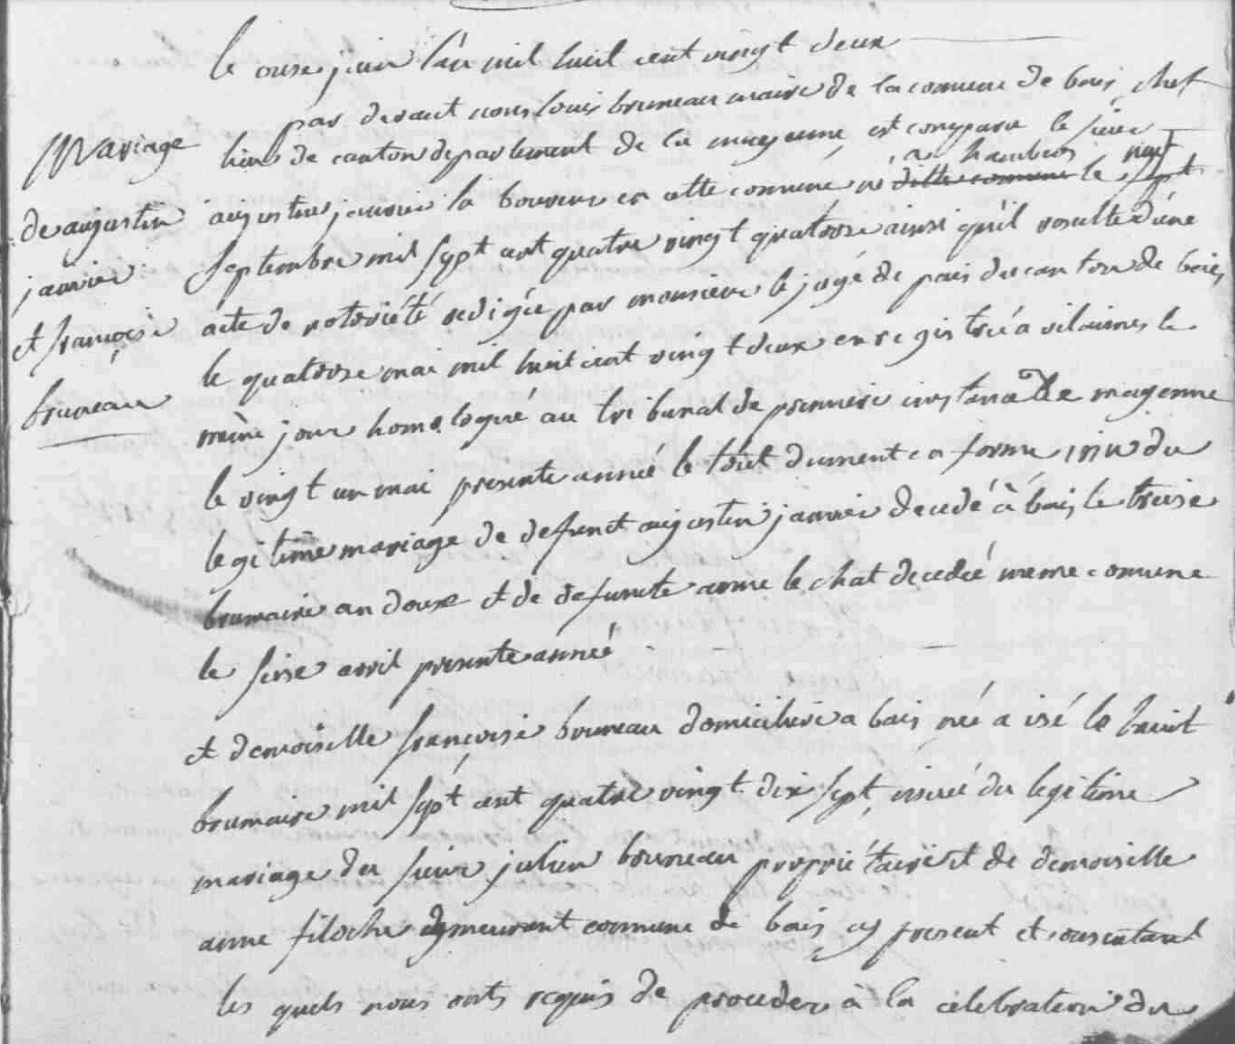 le onze juin l'an mil huit cent vingt deux
par devant nous louis bruneau maire de la comune de bais chef
Mariage
de augustin
janvier
et françoise
bruneau
lieu de canton departement de la mayenne est comparu le sieur
a hambers neuf
augustin janvier la bouveri en cette commune né ditte commune le sept
septembre mil sept cent quatre vingt quatorze ainsi qu'il resulte d'une
acte de notoriété redigée par monsieur le juge de pais du canton de bais
le quatorze mai mil huit cent vingt deux enregistrée a vilaines le
même jour homologué au tribunal de premiere instance de mayenne
le vingt un mai presente année le tout dument en forme issu du
legitime mariage de defunct augustin janvier decedé à bais le treise
brumaire an douze et de defuncte anne le chat decedée meme comune
le seise avril presente année
et demoiselle françoise bruneau domiciliée a bais née a isé le huit
brumaire mil sept cent quatre vingt dix sept, issue du legitime
mariage du sieur julien bruneau proprietaire et de demoiselle
anne filoche demeurant commune de bais cy present et consentant
les quels nous onts requis de proceder à la célebration du